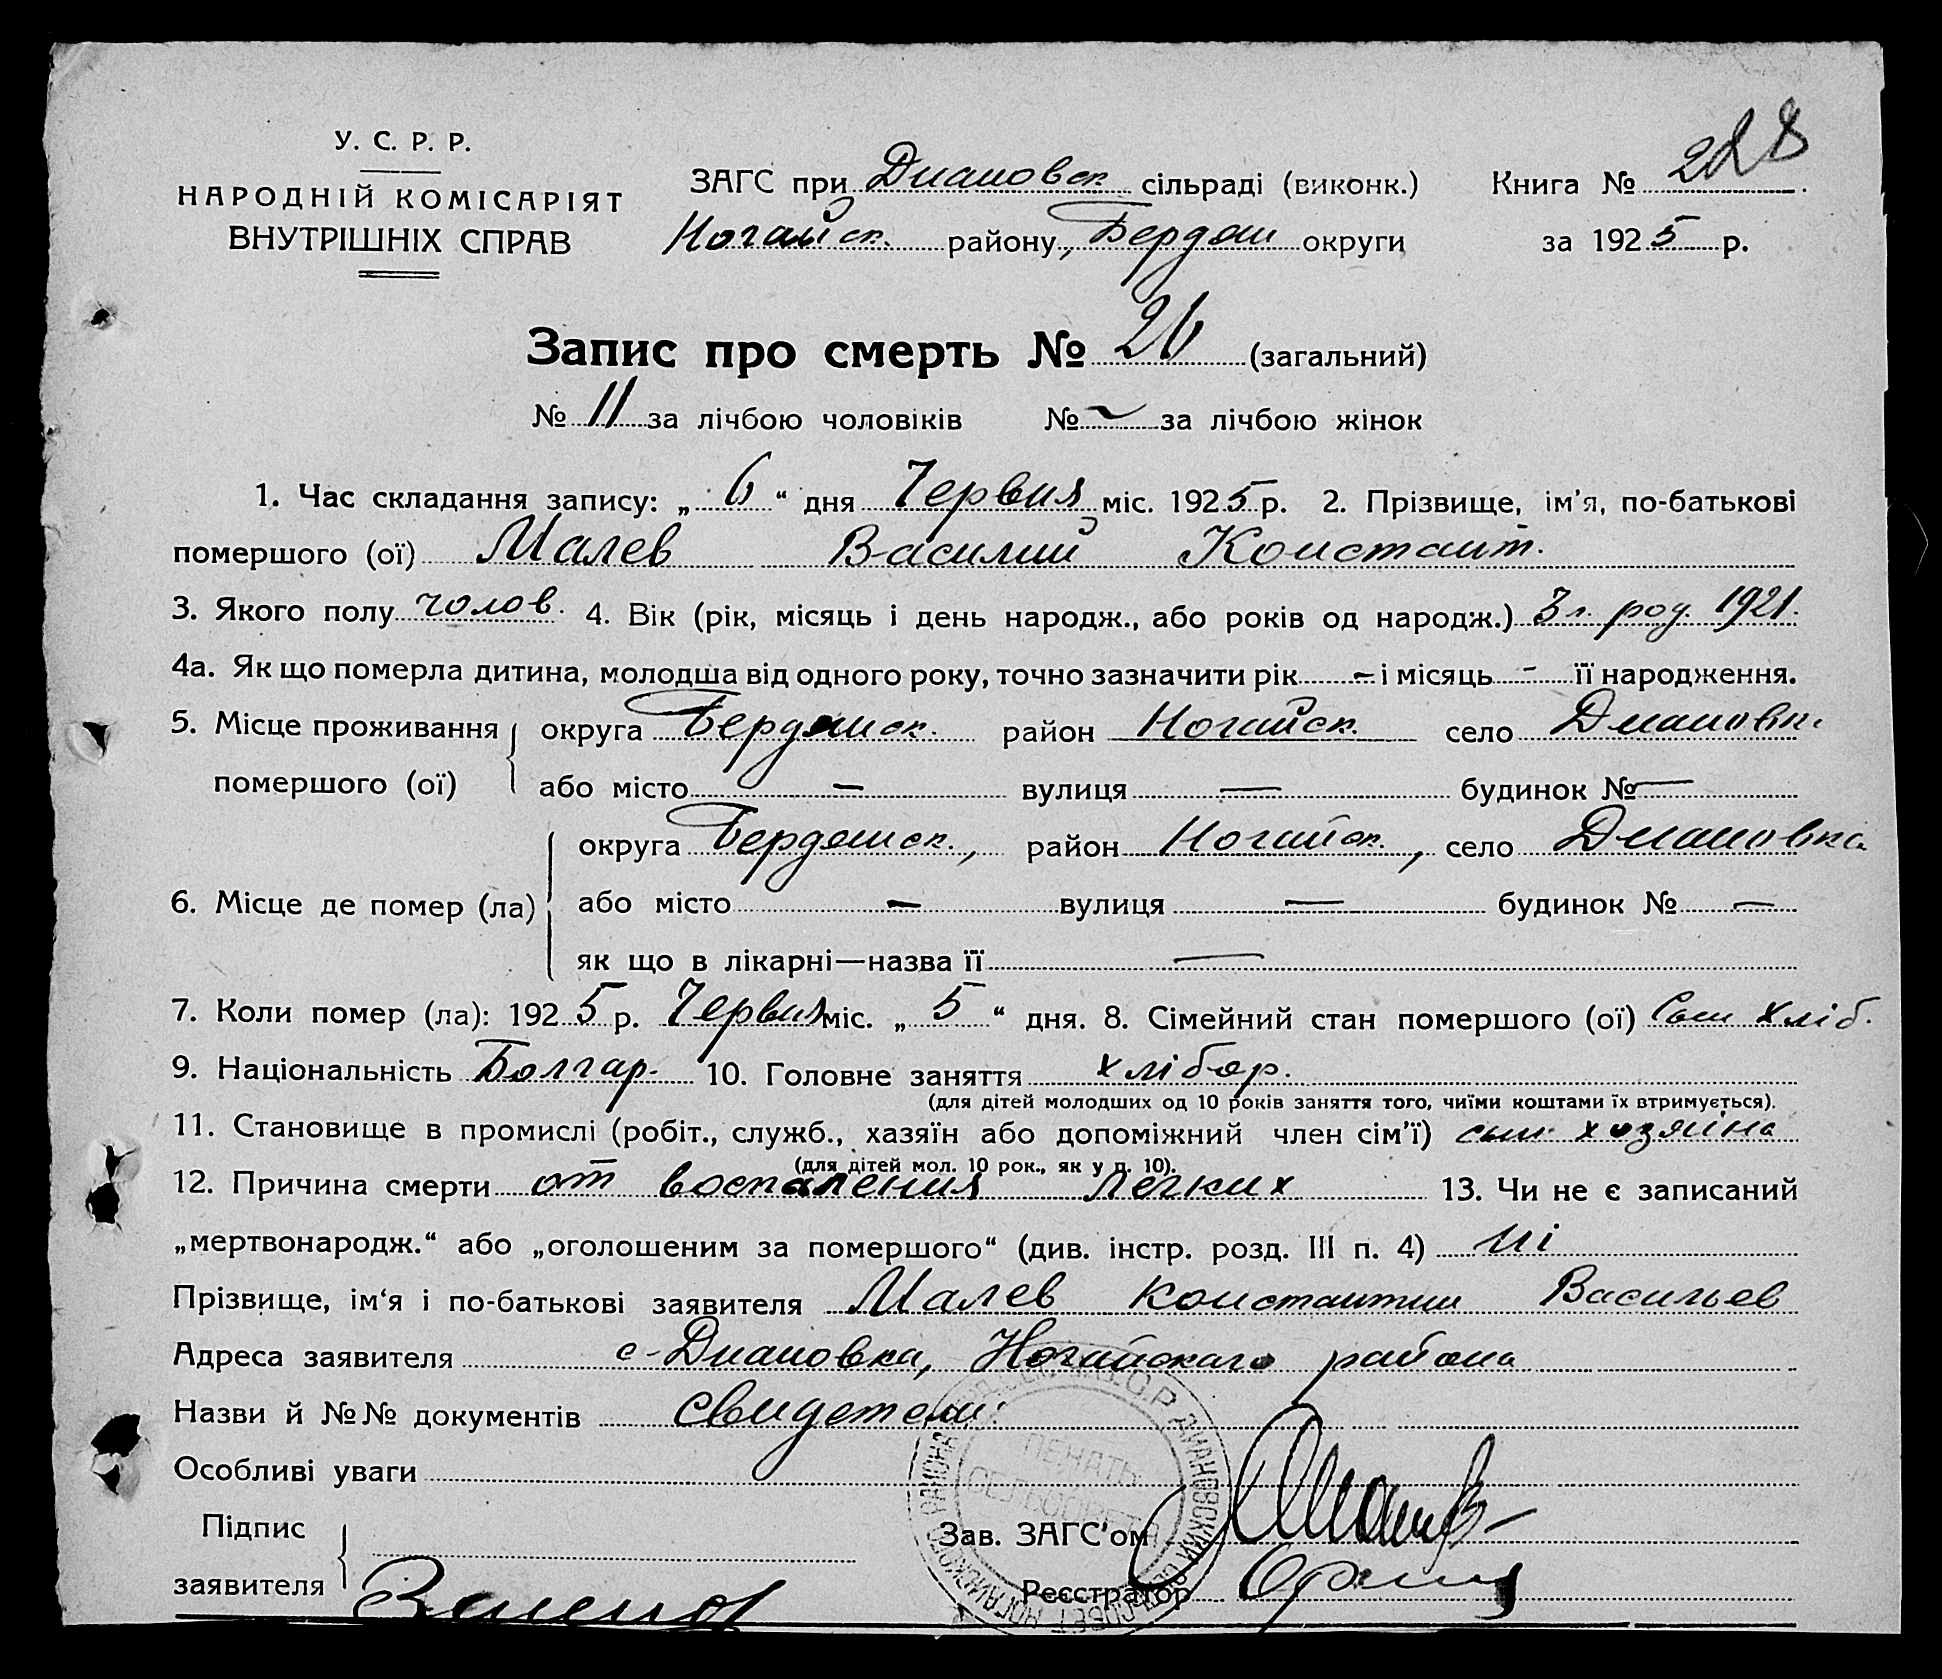 У. С. Р. Р.
НАРОДНІЙ КОМІСАРІЯТ
ВНУТРІШНІХ СПРАВ
ЗАГС при Диановск. сільраді (виконк.) Книга № 228
Ногайск. району, Бердян округи за 1925 р.
Запис про смерть № 26 (загальний)
№ 11 за лічбою чоловіків № – за лічбою жінок
1. Час складання запису: „ 6 “ дня Червня міс. 1925 р. 2. Прізвище, ім'я, по-батькові
помершого (ої) Малев Василий Констант.
3. Якого полу чолов. 4. Вік (рік, місяць і день народж., або років од народж.) 3 л. род. 1921.
4а. Як що померла дитина, молодша від одного року, точно зазначити рік – і місяць – її народження.
5. Місце проживання округа Бердянск. район Ногайск. село Диановк.
помершого (ої) або місто — вулиця — будинок № —
округа Бердянск., район Ногайск., село Диановка
6. Місце де помер (ла) або місто — вулиця — будинок № —
як що в лікарні—назва її —
7. Коли помер (ла): 1925 р. Червня міс. „ 5 “ дня. 8. Сімейний стан помершого (ої) Сын хліб.
9. Національність Болгар. 10. Головне заняття хлібор.
(для дітей молодших од 10 років заняття того, чиїми коштами їх втримується).
11. Становище в промислі (робіт., служб., хазяїн або допоміжний член сім'ї) сын хозяина
(для дітей мол. 10 рок., як у п. 10).
12. Причина смерти от воспаления легких 13. Чи не є записаний
„мертвонародж.“ або „оголошеним за помершого“ (див. інстр. розд. III п. 4) ні
Прізвище, ім'я і по-батькові заявителя Малев Константин Васильев
Адреса заявителя с-Диановка, Ногайскаго района
Назви й №№ документів свидетели:
Особливі уваги
Підпис
заявителя
Зав. ЗАГС'ом
Реєстратор
ПЕЧАТЬ
СЕЛЬСОВЕТА